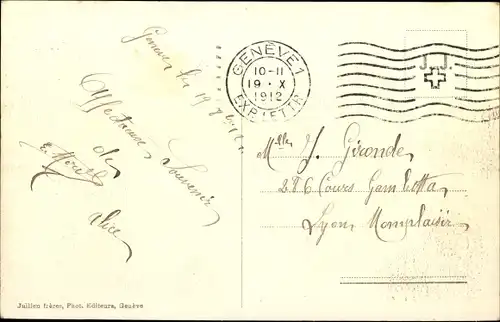 Geneve le 19
Affectueux Souvenir
de
Alice
GENÈVE 1
10-11
19 · X
1912
EXP. LETTR.
Mlle J. Gironde
286 Cours Gambetta
Lyon Monplaisir
Jullien frères, Phot. Editeurs, Genève